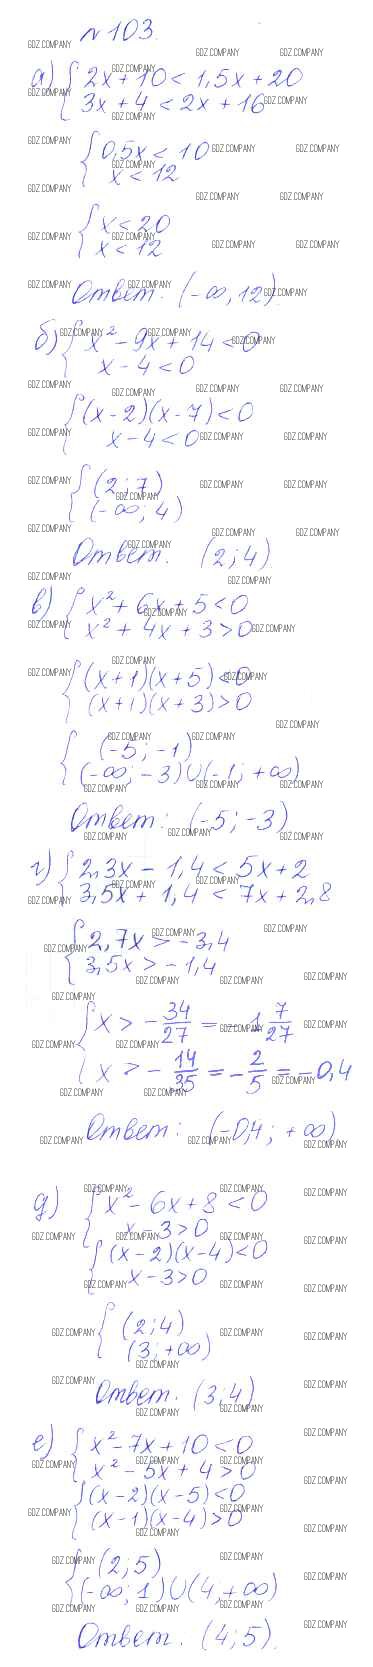 №103.
а) { 2x + 10 < 1,5x + 20
3x + 4 < 2x + 16
{ 0,5x < 10
x < 12
{ x < 20
x < 12
Ответ. (-∞, 12)
б) { x² - 9x + 14 < 0
x - 4 < 0
{ (x - 2)(x - 7) < 0
x - 4 < 0
{ (2; 7)
(-∞; 4)
Ответ. (2; 4)
в) { x² + 6x + 5 < 0
x² + 4x + 3 > 0
{ (x + 1)(x + 5) < 0
(x + 1)(x + 3) > 0
{ (-5; -1)
(-∞; -3)∪(-1; +∞)
Ответ: (-5; -3)
г) { 2,3x - 1,4 < 5x + 2
3,5x + 1,4 < 7x + 2,8
{ 2,7x > -3,4
3,5x > -1,4
{ x > -34/27 = -1 7/27
x > -14/35 = -2/5 = -0,4
Ответ: (-0,4; +∞)
д) { x² - 6x + 8 < 0
x - 3 > 0
{ (x - 2)(x - 4) < 0
x - 3 > 0
{ (2; 4)
(3; +∞)
Ответ. (3; 4)
е) { x² - 7x + 10 < 0
x² - 5x + 4 > 0
{ (x - 2)(x - 5) < 0
(x - 1)(x - 4) > 0
{ (2; 5)
(-∞; 1)∪(4, +∞)
Ответ. (4; 5).
GDZ.COMPANY